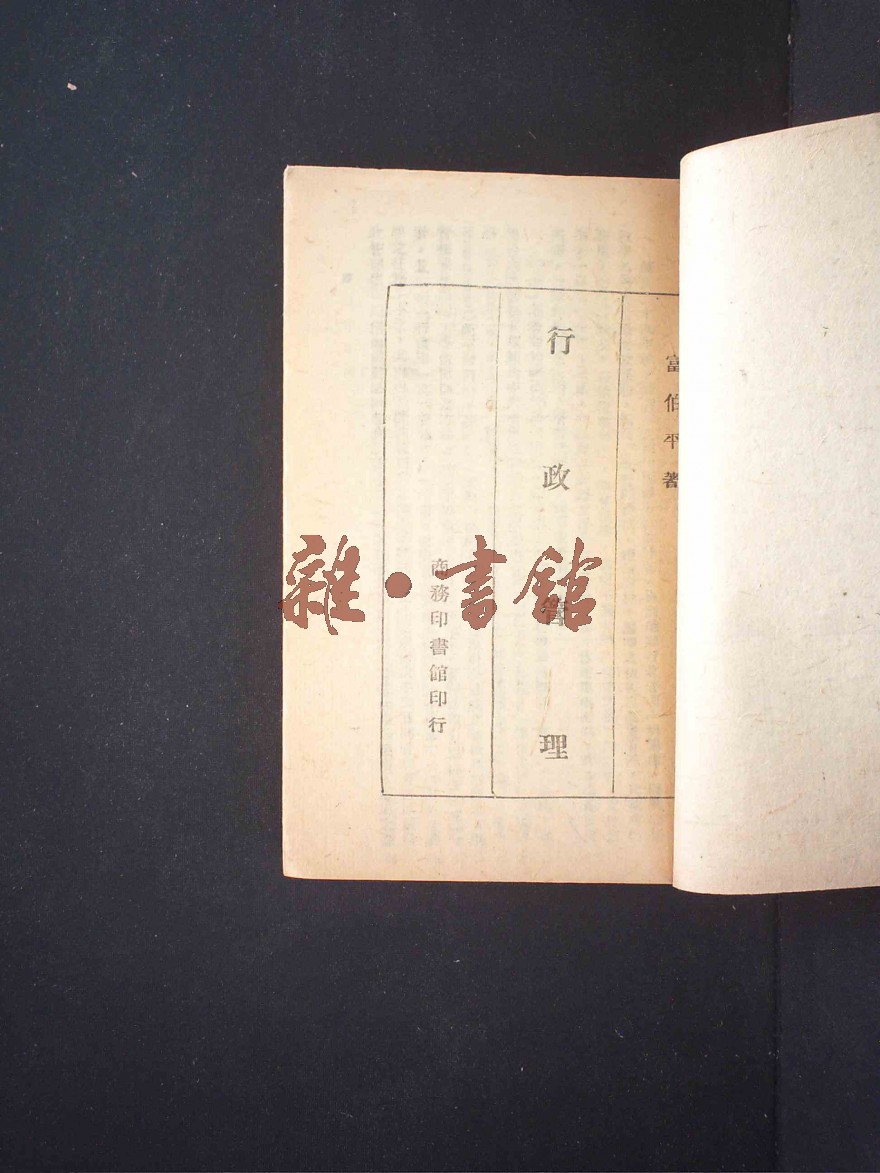 富伯平著
行政管理
商務印書館印行
雜·書館